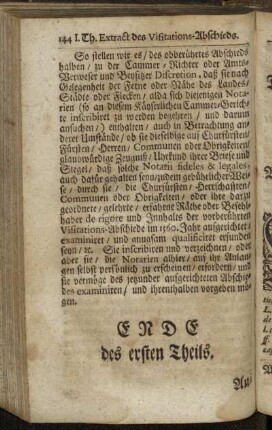 144 I. Th. Extract des Visitations-Abschieds.
So stellen wir es / des obberührten Abschieds
halben / zu der Cammer-Richter oder Amts-
Verweser und Beysitzer Discretion, daß sie nach
Gelegenheit der Ferne oder Nähe des Landes /
Städte oder Flecken / alda sich diejenigen Nota-
rien (so an diesem Käyserlichen Cammer-Gerich-
te inscribiret zu werden begehren / und darum
ansuchen /) enthalten / auch in Betrachtung an-
derer Umstände / ob sie dieselbige auf Churfürsten
Fürsten / Herren / Communen oder Obrigkeiten /
glaubwürdige Zeugniß / Uhrkund ihrer Briefe und
Siegel / daß solche Notarii fideles & legales,
auch dafür gehalten seyn / zudem gebührlicher Wei-
se / durch sie / die Churfürsten / Herrschafften /
Communen oder Obrigkeiten / oder ihre darzu
geordnete / gelehrte / erfahrne Räthe oder Befehl-
haber de rigore und Innhalts der vorberührten
Visitations-Abschieds im 1560. Jahr aufgerichtet /
examiniret / und gnugsam qualificiret erfunden
seyn / ꝛc. Sie inscribiren und verzeichnen / oder
aber sie / die Notarien alhier / auf ihr Anlan-
gen selbst persönlich zu erscheinen / erfordern / und
sie vermöge des jetzunder aufgerichteten Abschie-
des examiniren / und ihrenthalben vorgeben mö-
gen.
ENDE
des ersten Theils.